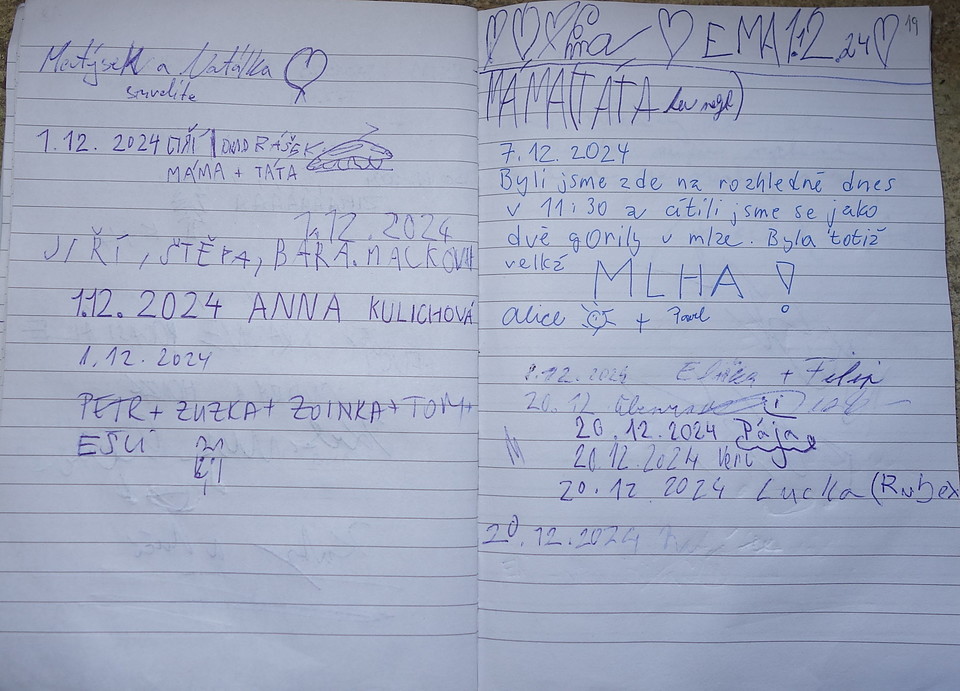 Matýsek a Natálka
1.12. 2024 JIŘÍ ONDRÁŠEK
MÁMA + TÁTA
1.12.2024
JIŘÍ, ŠTĚPA, BÁRA. MACKOVI
1.12.2024 ANNA KULICHOVÁ
1.12.2024
PETR + ZUZKA + ZOINKA + TOM +
19
Ema EMA 1.12.24
MÁMA (TÁTA
7.12.2024
Byli jsme zde na rozhledně dnes
v 11:30 a cítili jsme se jako
dvě gorily v mlze. Byla totiž
velká MLHA !
Alice + Pavel
8.12.2024 Eliška + Filip
20.12
20.12.2024 Pája
20.12.2024
20.12.2024 Lucka (Rubex
20.12.2024